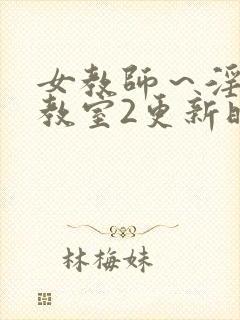 女教师～淫
教室2更新
林梅妹